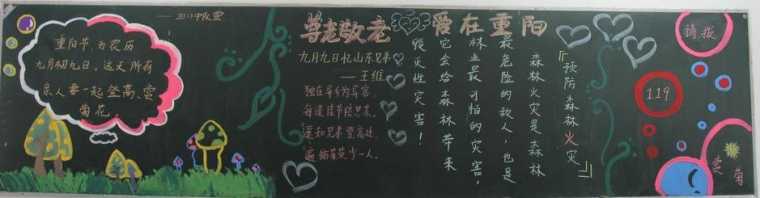 尊老敬老
爱在重阳
重阳节,为农历
九月初九日,这天所有
亲人要一起登高,赏
菊花。
九月九日忆山东兄弟
——王维
独在异乡为异客,
每逢佳节倍思亲。
遥知兄弟登高处,
遍插茱萸少一人。
『预防森林火灾』
森林火灾是森林
最危险的敌人,也是
林业最可怕的灾害,
它会给森林带来
毁灭性灾害!
请拨
119
赏菊